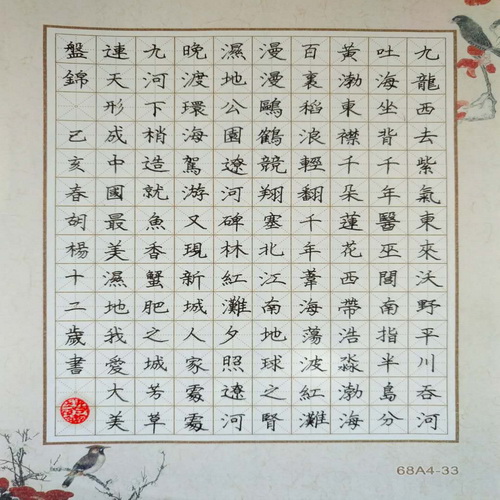 九龍西去紫氣東來沃野平川吞河
吐海坐背千年醫巫閭南指半島分
黃渤東襟千朵蓮花西帶浩淼渤海
百裏稻浪輕翻千年葦海蕩波紅灘
漫漫鷗鶴競翔塞北江南地球之腎
濕地公園遼河碑林紅灘夕照遼河
晚渡環海駕游又現新城人家
九河下梢造就魚香蟹肥之城芳草
連天形成中國最美濕地我愛大美
盤錦 己亥春胡楊十二歲書
68A4-33